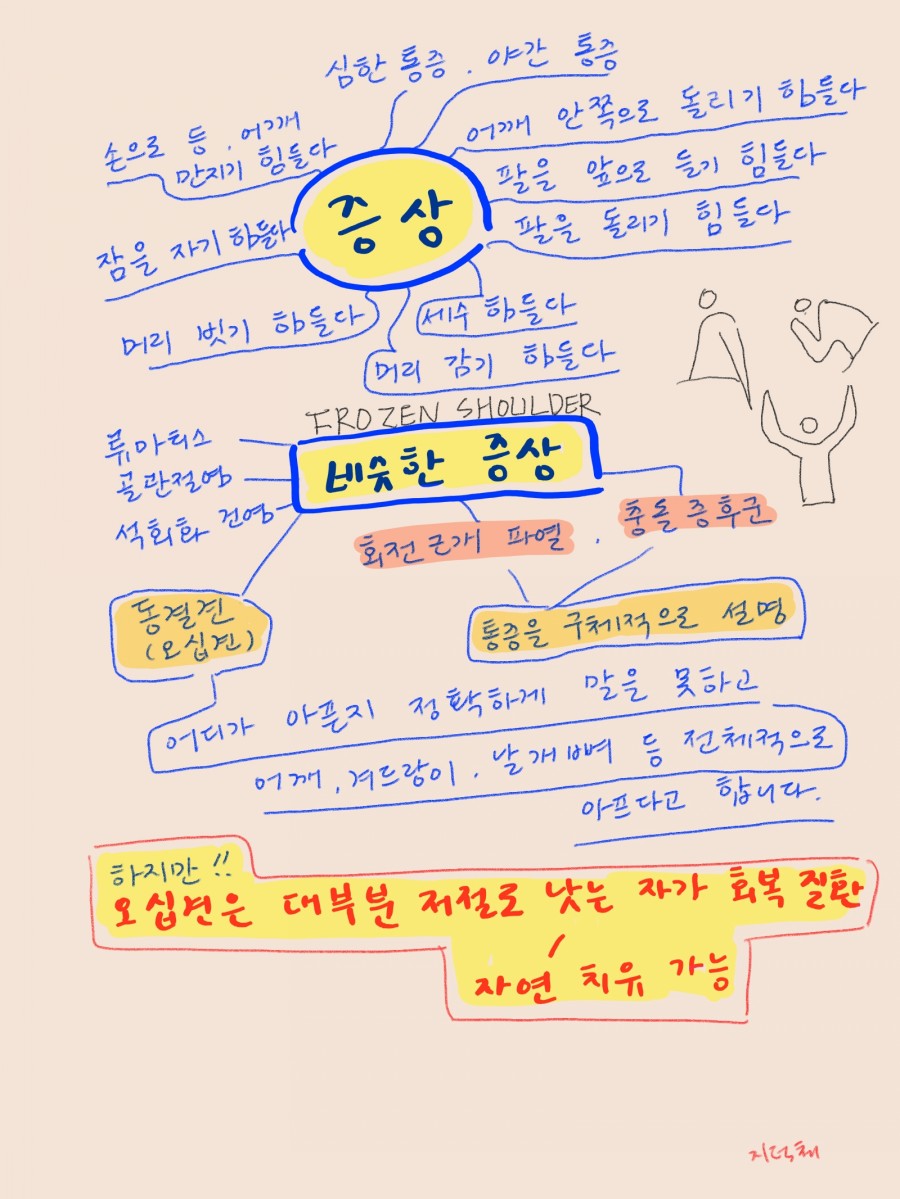 심한 통증. 야간 통증
손으로 등, 어깨
만지기 힘들다
어깨 안쪽으로 돌리기 힘들다
팔을 앞으로 들기 힘들다
증상
팔을 돌리기 힘들다
잠을 자기 힘들다
머리 벗기 힘들다
세수 힘들다
머리 감기 힘들다
FROZEN SHOULDER
류마티스
골관절염
석회화 건염
비슷한 증상
회전근개 파열. 충돌증후군
동결견
(오십견)
통증을 구체적으로 설명
어디가 아픈지 정확하게 말을 못하고
어깨, 겨드랑이, 날개뼈 등 전체적으로
아프다고 합니다.
하지만!!
오십견은 대부분 저절로 낫는 자가 회복 질환
자연 치유 가능